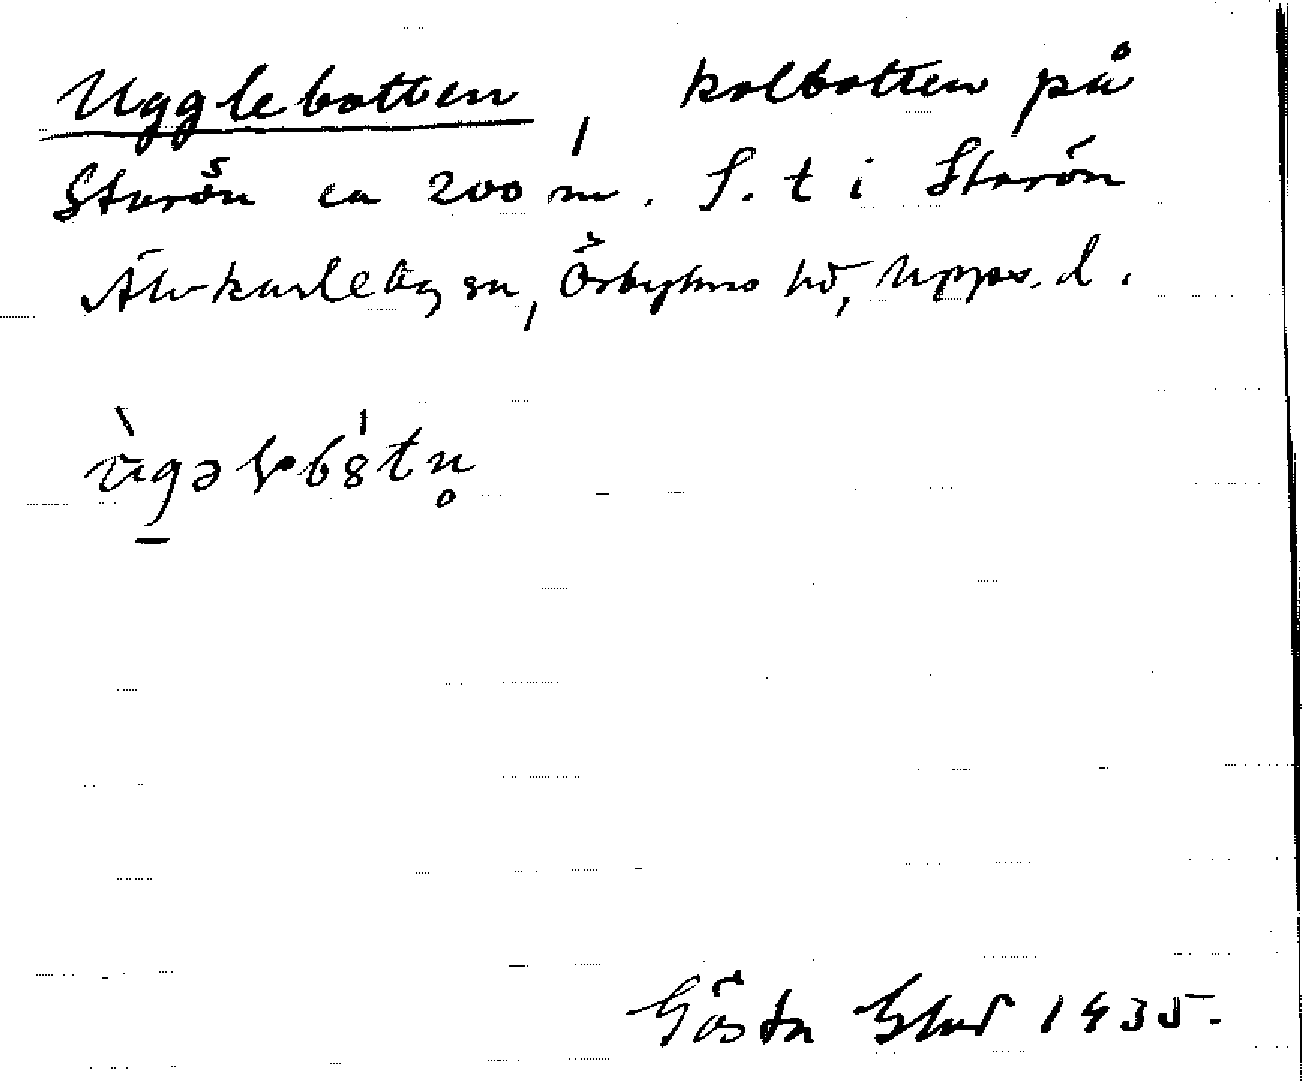 Ugglebotten, kolbotten på
Storön ca 200 m. S. t i Storön
Älvkarleby sn, Örbyhus hd, Upps. l.
Gösta 1935.